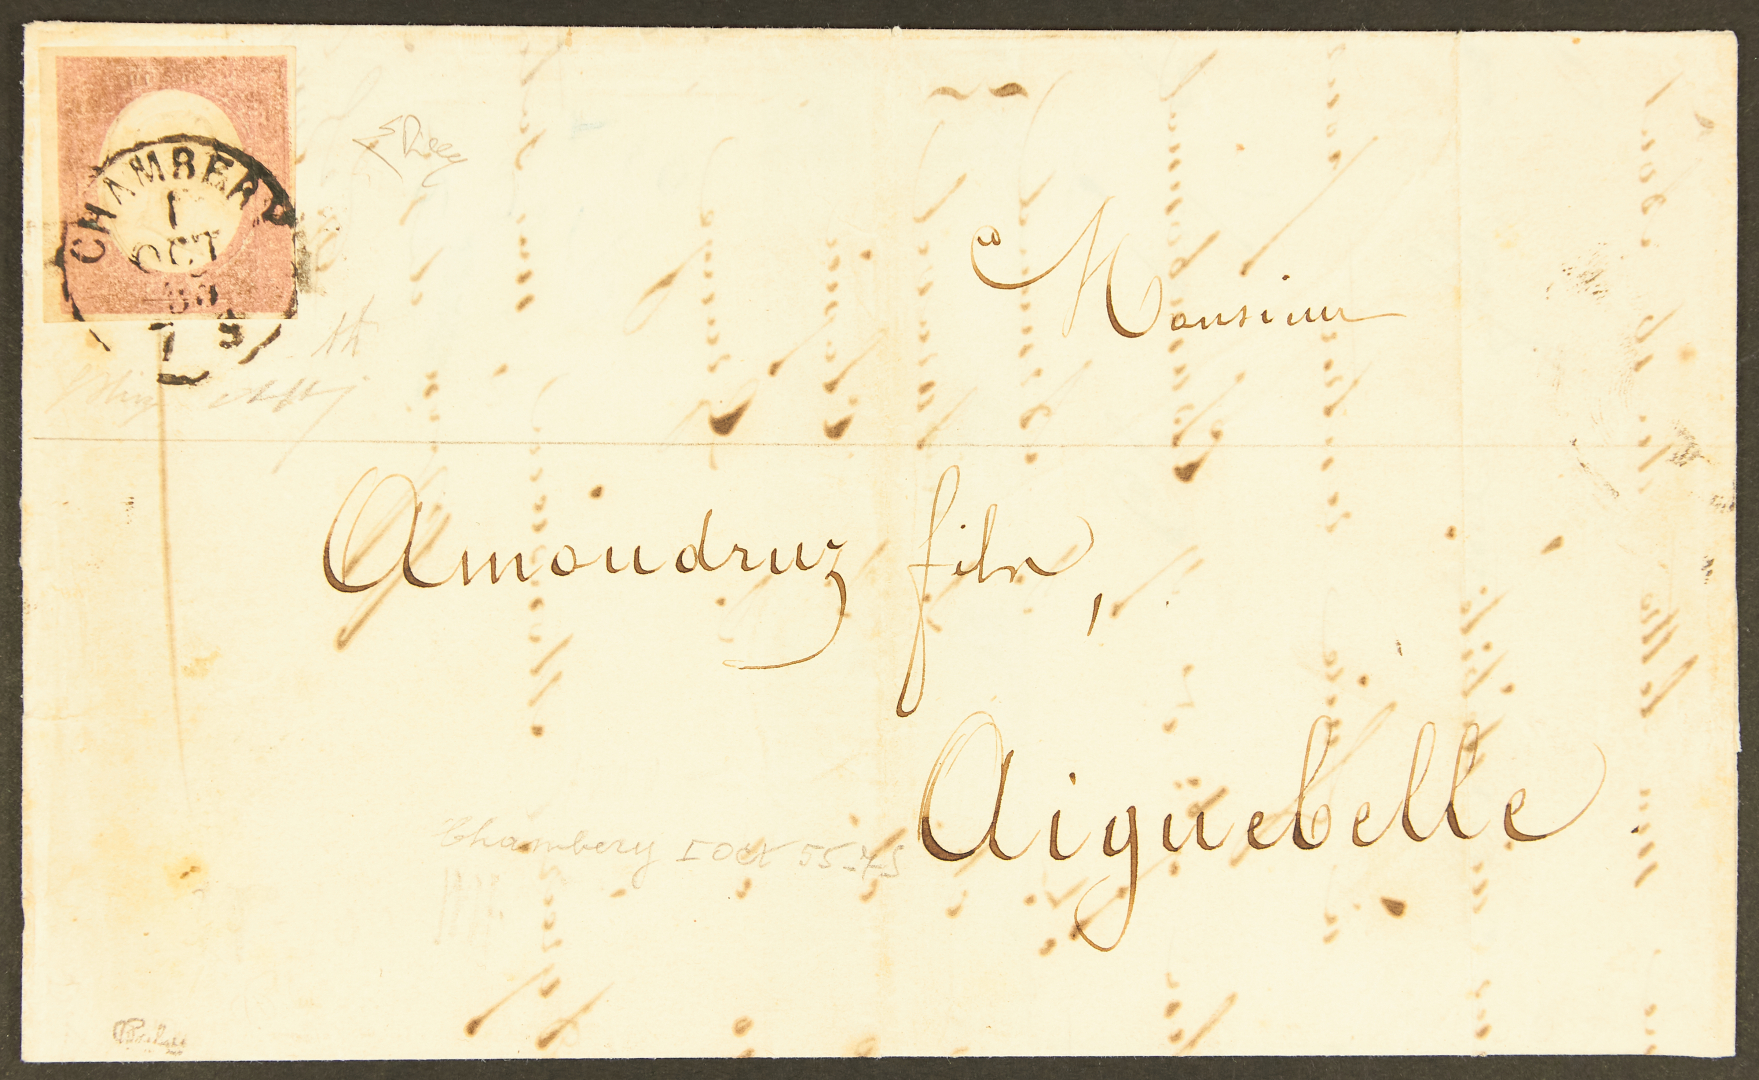 CHAMBERY
1
OCT
55
7 S
Monsieur
Amoudruz fils,
Aiguebelle
Chambery 1 Oct 55-7S